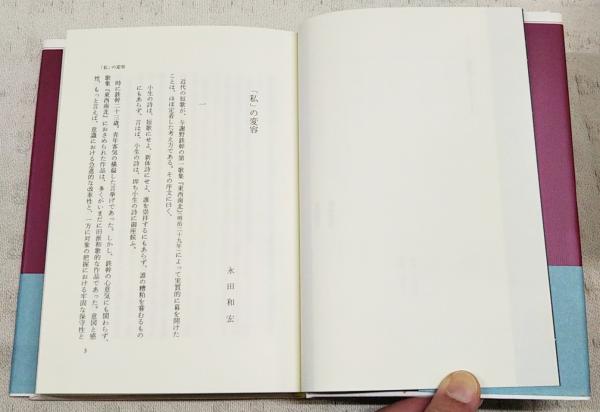 「私」の変容
「私」の変容
永田和宏
一
近代の短歌が、与謝野鉄幹の第一歌集『東西南北』(明治二十九年)によって実質的に幕を開けた
ことは、ほぼ定着した考え方である。その序文に曰く、
小生の詩は、短歌にせよ、新体詩にせよ、誰を崇拝するにもあらず、誰の糟粕を嘗むるもの
にもあらず、言はば、小生の詩は、即ち小生の詩に御座候ふ。
時に鉄幹二十三歳。青年客気の横溢した言挙げであった。しかし、鉄幹の心意気にも関わらず、
歌集『東西南北』におさめられた作品は、多くがいまだに旧派和歌的な作品であった。意図と感
性、もっと言えば、意識における急進的な改革性と、一方に対象の把握における牢固な保守性と
3